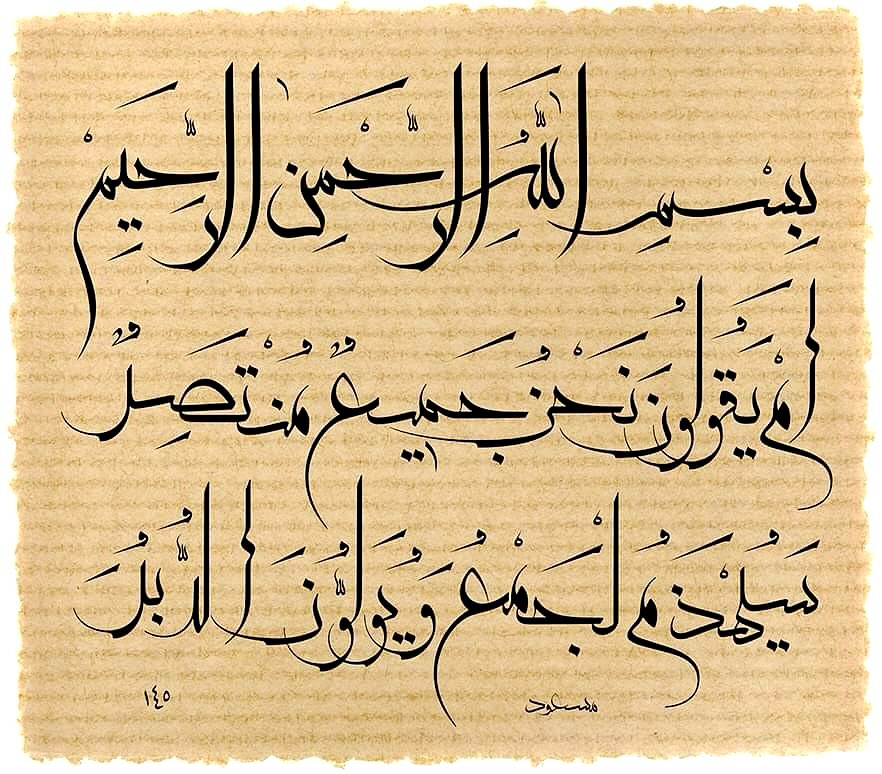 بِسْمِ اللَّهِ الرَّحْمنِ الرَّحِيمِ
أَمْ يَقُولُونَ نَحْنُ جَمِيعٌ مُنْتَصِرٌ
سَيُهْزَمُ الْجَمْعُ وَيُوَلُّونَ الدُّبُرَ
مسعود ١٤٥